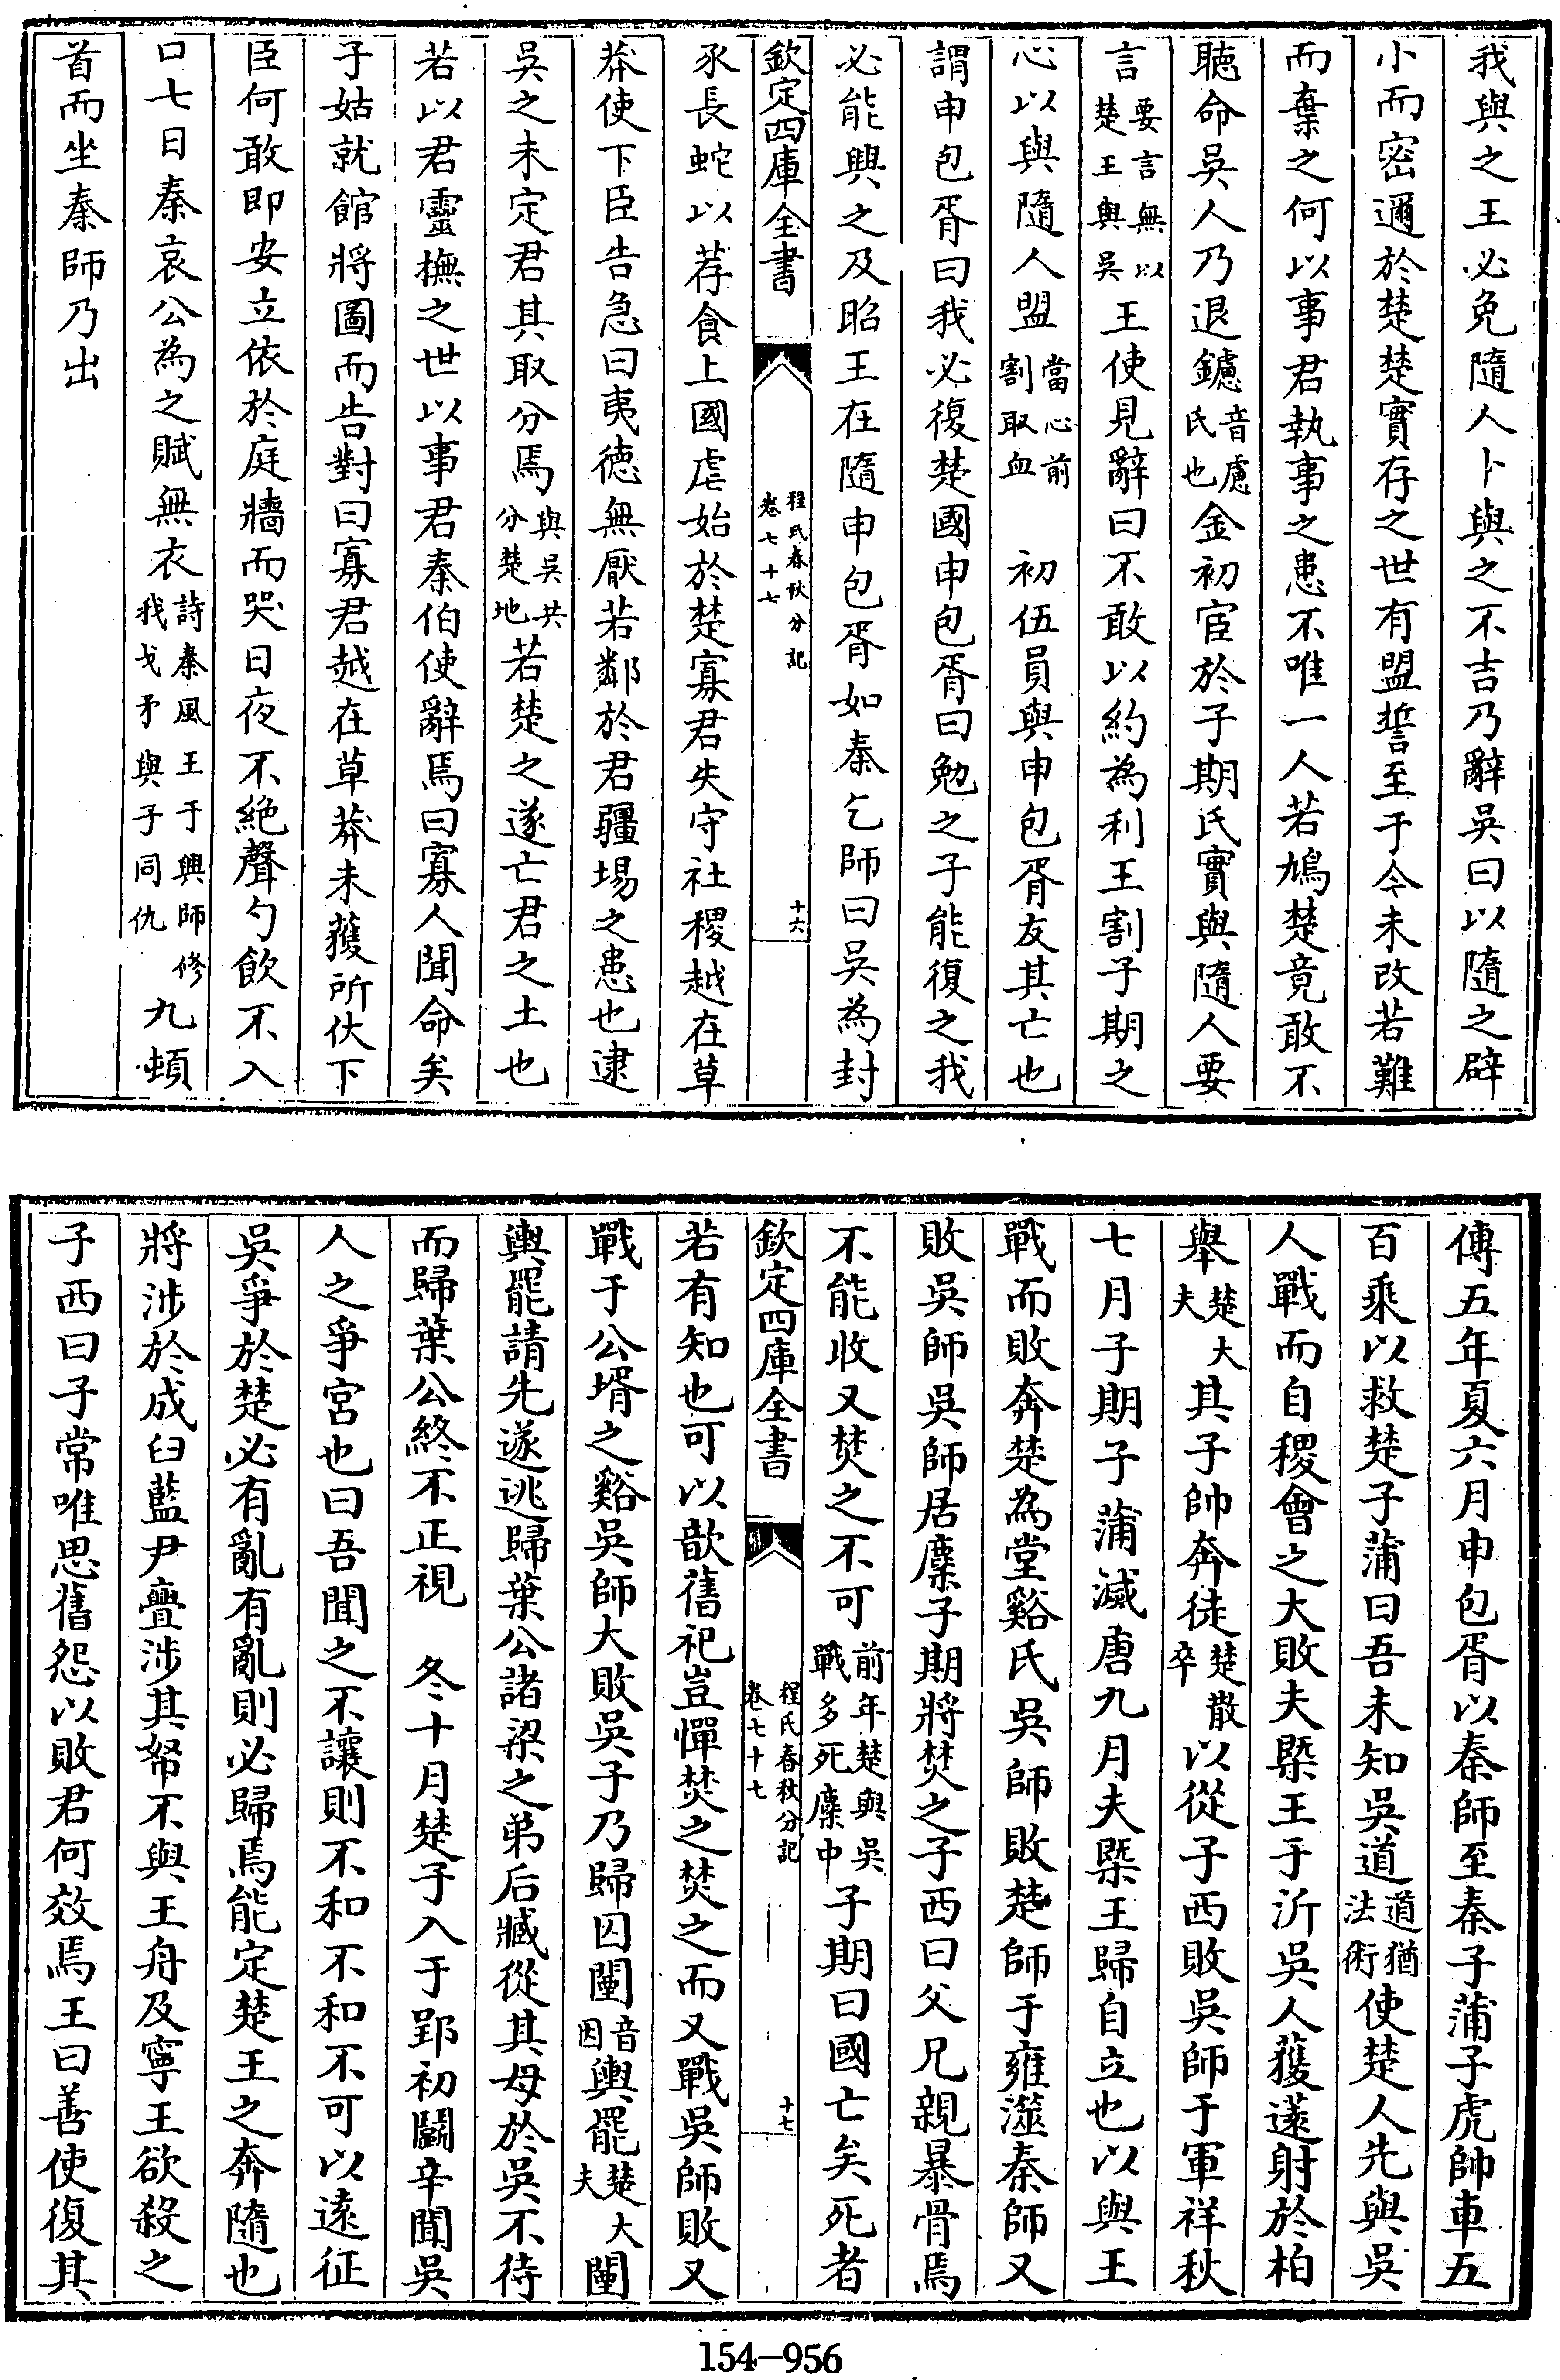 我與之王必免隨人卜與之不吉乃辭吳曰以隨之辟
小而密邇於楚楚實存之世有盟誓至于今未改若難
而棄之何以事君執事之患不唯一人若鳩楚竟敢不
聽命吳人乃退鑢音慮氏也金初宦於子期氏實與隨人要
言要言無以楚王與吳王使見辭曰不敢以約為利王割子期之
心以與隨人盟當心前割取血　初伍員與申包胥友其亡也
謂申包胥曰我必復楚國申包胥曰勉之子能復之我
必能興之及昭王在隨申包胥如秦乞師曰吳為封
欽定四庫全書　程氏春秋分記卷七十七　十六
豕長蛇以荐食上國虐始於楚寡君失守社稷越在草
莽使下臣告急曰夷徳無厭若鄰於君疆埸之患也逮
吳之未定君其取分焉與吳共分楚地若楚之遂亡君之土也
若以君靈撫之世以事君秦伯使辭焉曰寡人聞命矣
子姑就館將圖而告對曰寡君越在草莽未獲所伏下
臣何敢即安立依於庭牆而哭日夜不絶聲勺飲不入
口七日秦哀公為之賦無衣詩秦風王于興師修我戈矛與子同仇九頓
首而坐秦師乃出
傳五年夏六月申包胥以秦師至秦子蒲子虎帥車五
百乘以救楚子蒲曰吾未知吳道道猶法術使楚人先與吳
人戰而自稷會之大敗夫槩王于沂吳人獲薳射於柏
舉楚大夫其子帥奔徒楚散卒以從子西敗吳師于軍祥秋
七月子期子蒲滅唐九月夫槩王歸自立也以與王
戰而敗奔楚為堂谿氏吳師敗楚師于雍澨秦師又
敗吳師吳師居麇子期將焚之子西曰父兄親暴骨焉
不能收又焚之不可前年楚與吳戰多死麇中子期曰國亡矣死者
欽定四庫全書　程氏春秋分記卷七十七　十七
若有知也可以歆舊祀豈憚焚之焚之而又戰吳師敗又
戰于公壻之谿吳師大敗吳子乃歸囚闉音因輿罷楚大夫闉
輿罷請先遂逃歸葉公諸梁之弟后臧從其母於吳不待
而歸葉公終不正視　冬十月楚子入于郢初鬬辛聞吳
人之爭宮也曰吾聞之不讓則不和不和不可以遠征
吳爭於楚必有亂有亂則必歸焉能定楚王之奔隨也
將涉於成臼藍尹亹涉其帑不與王舟及寧王欲殺之
子西曰子常唯思舊怨以敗君何效焉王曰善使復其
154-956